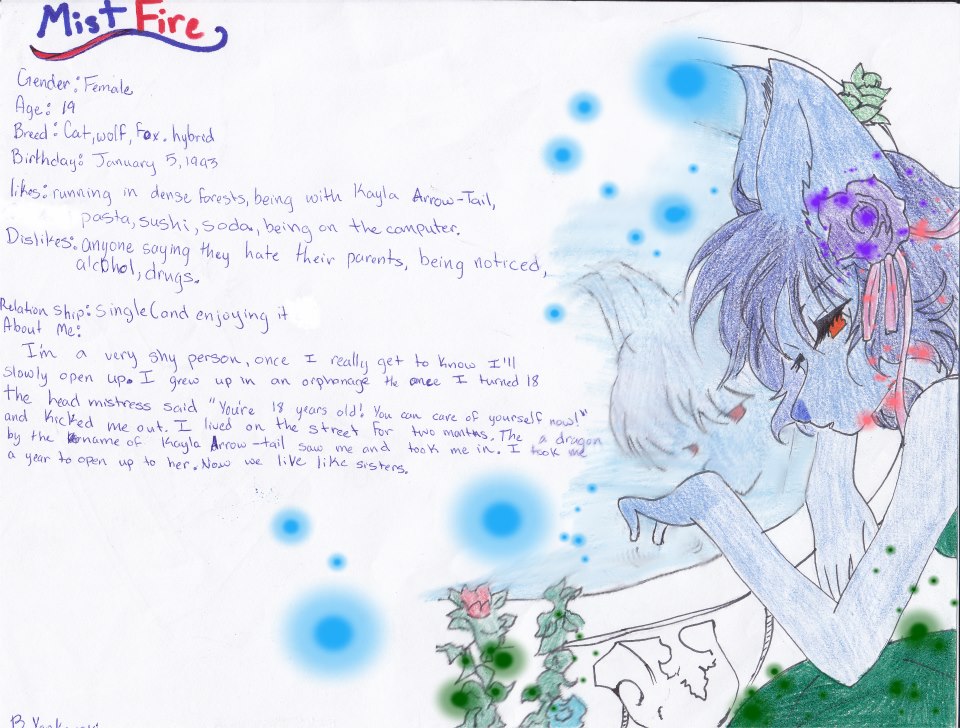 Mist Fire
Gender: Female
Age: 19
Breed: Cat, wolf, Fox. hybrid
Birthday: January 5, 1993
likes: running in dense forests, being with Kayla Arrow-Tail,
pasta, sushi, soda, being on the computer.
Dislikes: anyone saying they hate their parents, being noticed,
alcohol, drugs.
Relation Ship: Single (and enjoying it
About Me:
I'm a very shy person, once I really get to know I'll
slowly open up. I grew up in an orphonage the once I turned 18
the head mistress said "You're 18 years old! You can care of yourself now!"
and kicked me out. I lived on the street for two months. The a dragon
by the name of Kayla Arrow-tail saw me and took me in. I took me
a year to open up to her. Now we live like sisters.